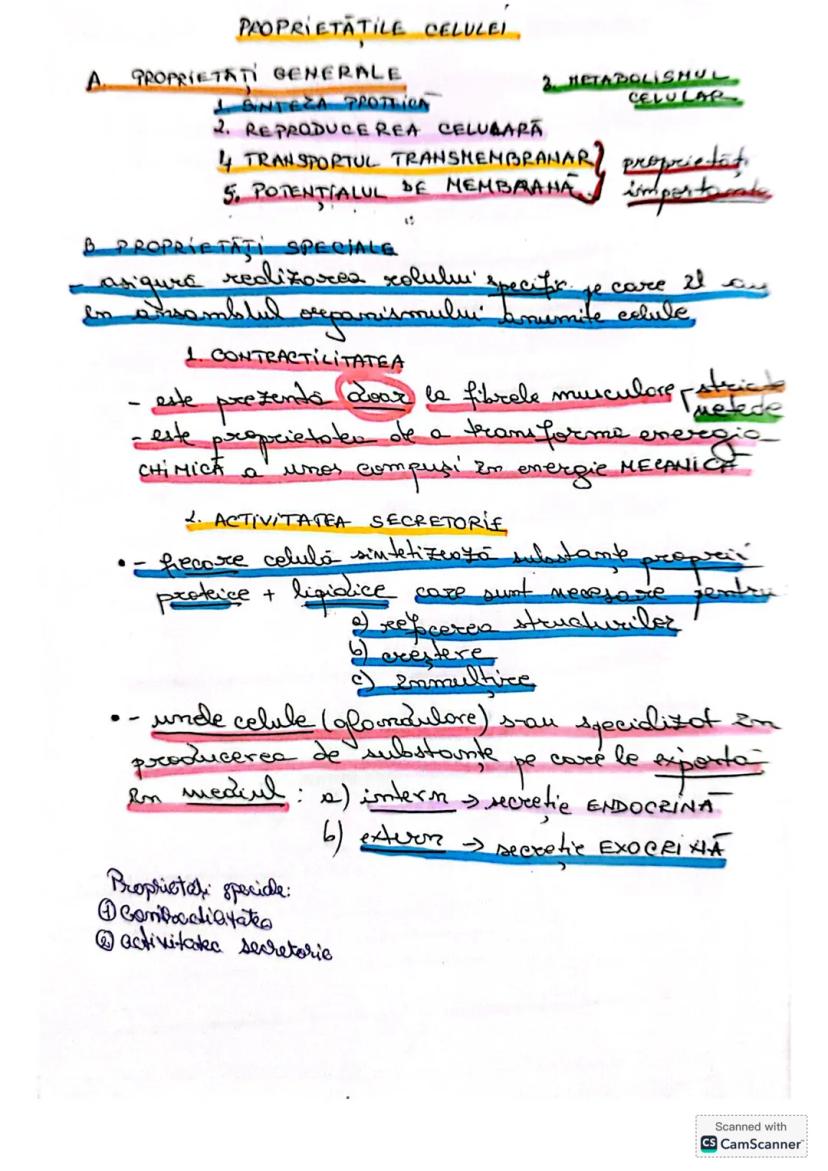 PROPRIETĂȚILE CELULEI
A. PROPRIETĂȚI GENERALE
1. SINTEZA PROTEICĂ
2. REPRODUCEREA CELULARĂ
3. METABOLISMUL
CELULAR
4 TRANSPORTUL TRANSMEMBRANAR
5. POTENȚIALUL DE MEMBRANĂ
proprietăți
importante
B PROPRIETĂȚI SPECIALE
- asigură realizarea rolului specific pe care îl au
în ansamblul organismului anumite celule
1. CONTRACTILITATEA
- este prezentă doar la fibrele musculare striate
netede
- este proprietatea de a transforma energia
CHIMICĂ a unor compuși în energie MECANICĂ
2. ACTIVITATEA SECRETORIE
• - fiecare celulă sintetizează substanțe proprii
proteice + lipidice care sunt necesare pentru
a) refacerea structurilor
b) creștere
c) înmulțire
• - unele celule (glandulare) s-au specializat în
producerea de substanțe pe care le exportă
în mediul : a) intern → secreție ENDOCRINĂ
b) extern → secreție EXOCRINĂ
Proprietăți speciale:
① contractilitatea
② activitatea secretorie
Scanned with
CS CamScanner